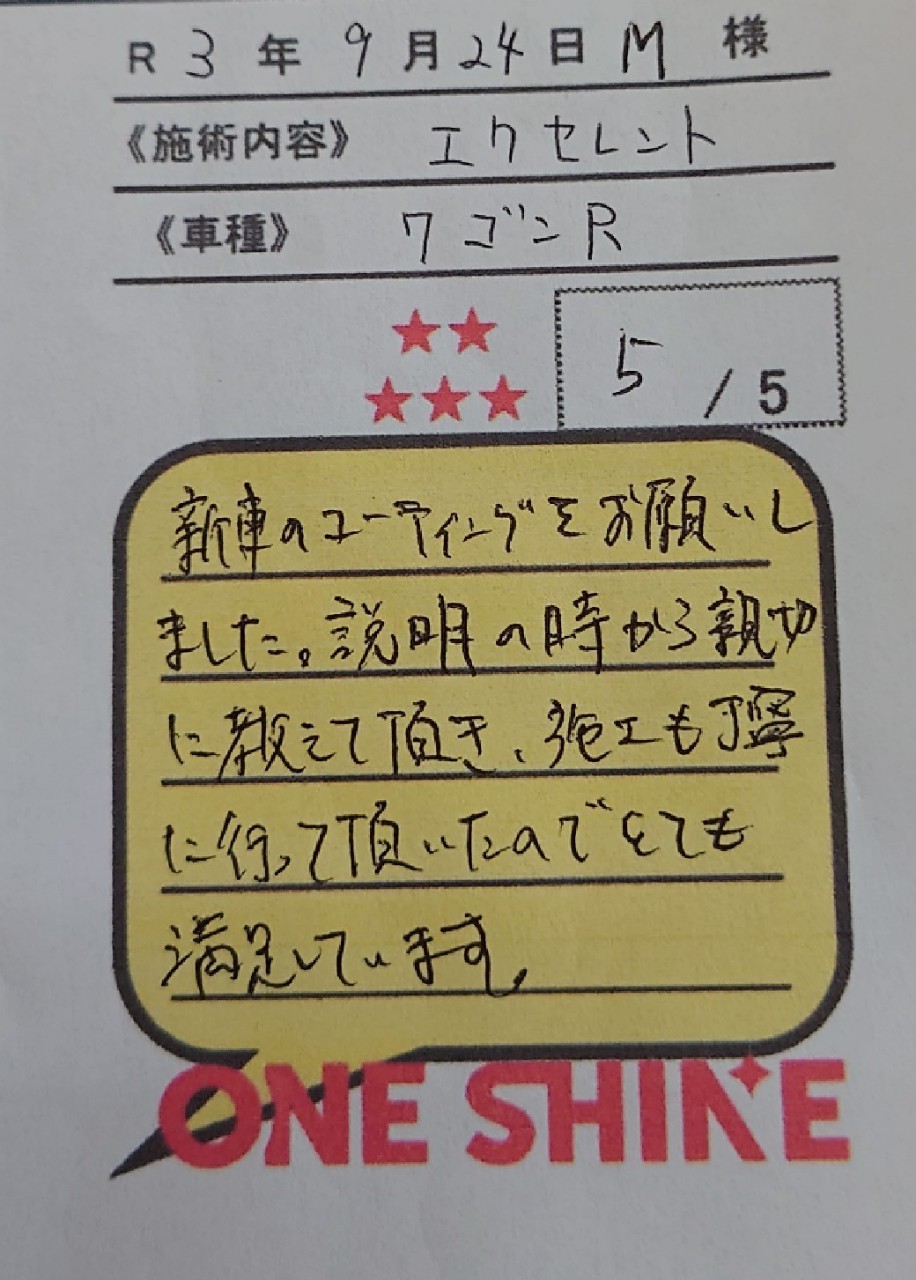 R 3 年 9 月 24 日 M 様
《施術内容》 エクセレント
《車種》 ワゴンR
5 / 5
新車のコーティングをお願いし
ました。説明の時から親切
に教えて頂き、施工も丁寧
に行って頂いたのでとても
満足しています。
ONE SHINE